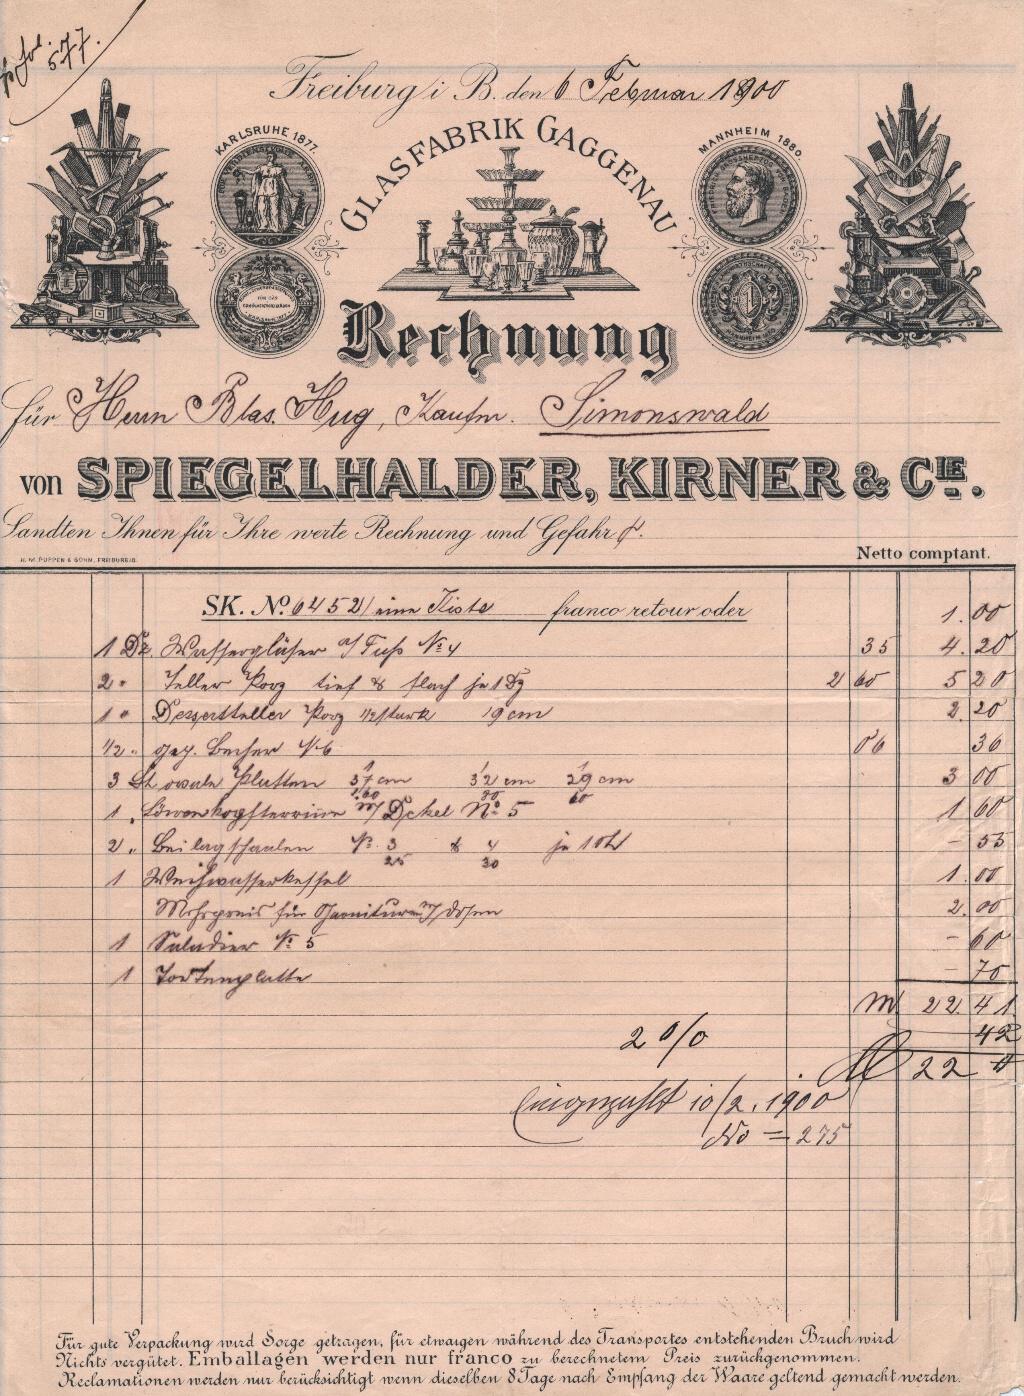 Fol. 577.
Freiburg i B. den 6 Februar 1900
KARLSRUHE 1877.
GLASFABRIK GAGGENAU
MANNHEIM 1880.
Rechnung
für Herrn Blas. Hug, Kaufm. Simonswald
von SPIEGELHALDER, KIRNER & CIE.
Sandten Ihnen für Ihre werte Rechnung und Gefahr
H. M. POPPEN & SOHN, FREIBURG i/B.
Netto comptant.
SK. No. 6452/ eine Kiste franco retour oder 1.00
1 Dz. Wassergläser a/ Fuss No 4 35 4.20
2 " Teller Porz tief & flach je 1 Dz 2 60 5 20
1 " Dessertteller Porz 1/2 stark 19 cm 2.20
1/2 " gep. Becher No 6 06 36
3 St ovale Platten 37 cm 32 cm 29 cm 3 00
1.60 80 60
1 " Löwenkopfterrine m/ Deckel No 5 1 60
2 " Beilagschaalen No. 3 & 4 je 1 St – 55
25 30
1 Weihwasserkessel 1.00
Mehrpreis für Garnituren m/ Dosen 2.00
1 Saladier No 5 – 60
1 Tortenplatte – 70
M. 22.41
2 % 42
M 22
Einbezahlt 10/2. 1900
No = 275
Für gute Verpackung wird Sorge getragen, für etwaigen während des Transportes entstehenden Bruch wird
Nichts vergütet. Emballagen werden nur franco zu berechnetem Preis zurückgenommen.
Reclamationen werden nur berücksichtigt wenn dieselben 8 Tage nach Empfang der Waare geltend gemacht werden.